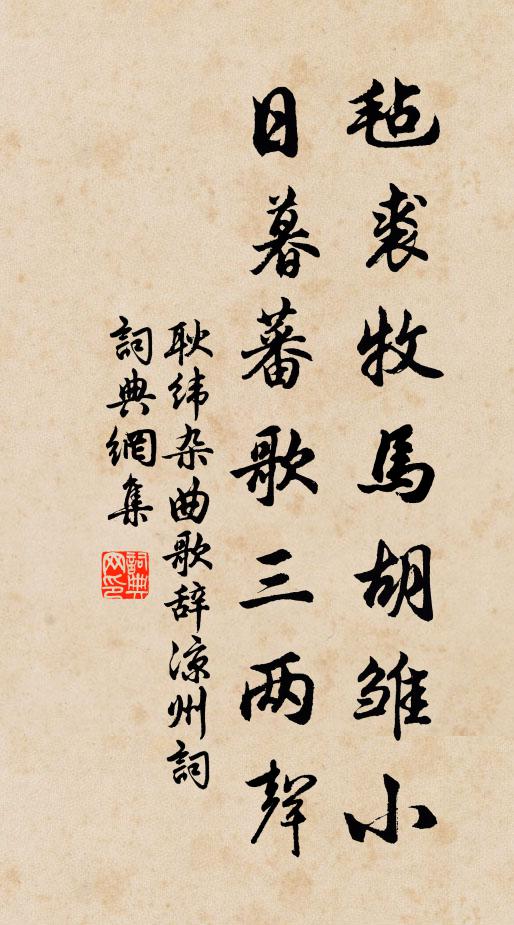 毡裘牧馬胡雏小
日暮蕃歌三两聲
耿纬杂曲歌辞凉州詞
詞典網集
詞典网印